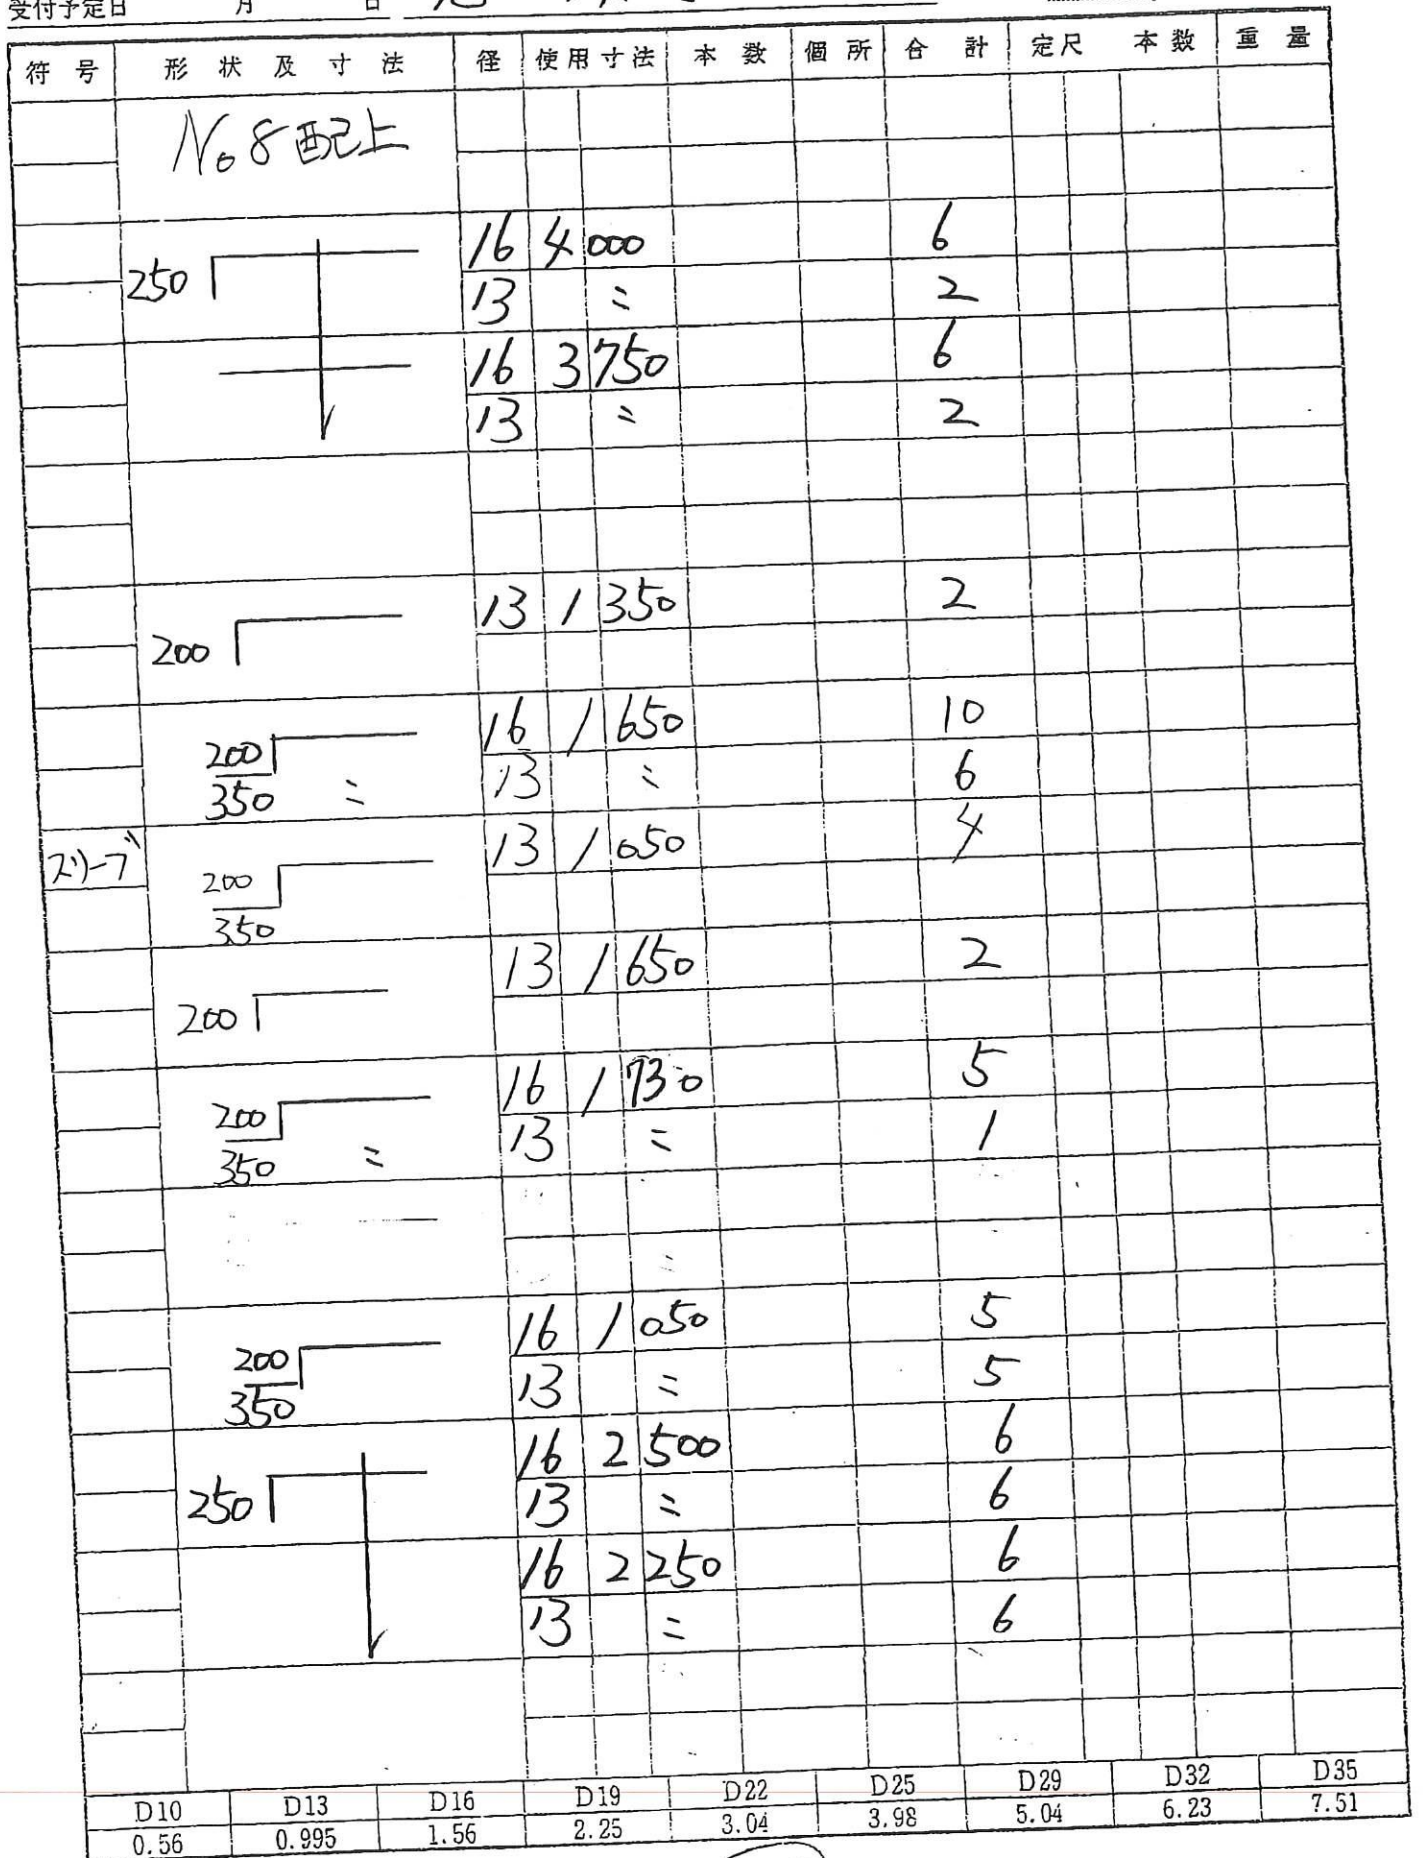 受付予定日 月 日
符号 形状及寸法 径 使用寸法 本数 個所 合計 定尺 本数 重量
No 8 配上
250 16 4 000 6
13 〃 2
16 3 750 6
13 〃 2
200 13 1 350 2
200 16 1 650 10
350 〃 13 〃 6
スリーブ 200 13 1 050 4
350
200 13 1 650 2
200 16 1 730 5
350 〃 13 〃 1
200 16 1 050 5
350 13 〃 5
250 16 2 500 6
13 〃 6
16 2 250 6
13 〃 6
D10 D13 D16 D19 D22 D25 D29 D32 D35
0.56 0.995 1.56 2.25 3.04 3.98 5.04 6.23 7.51